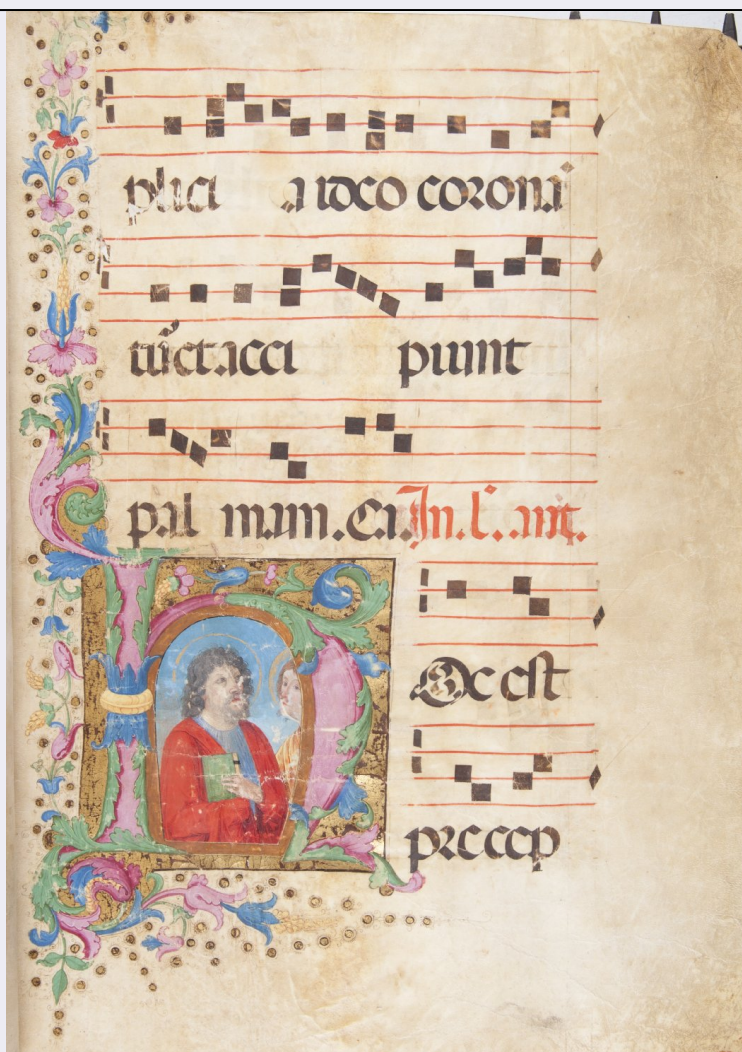 plici a ideo corona
tiu̅ et acci piunt
pal mam. Eu. In. l̅. ant.
Oc est
precep